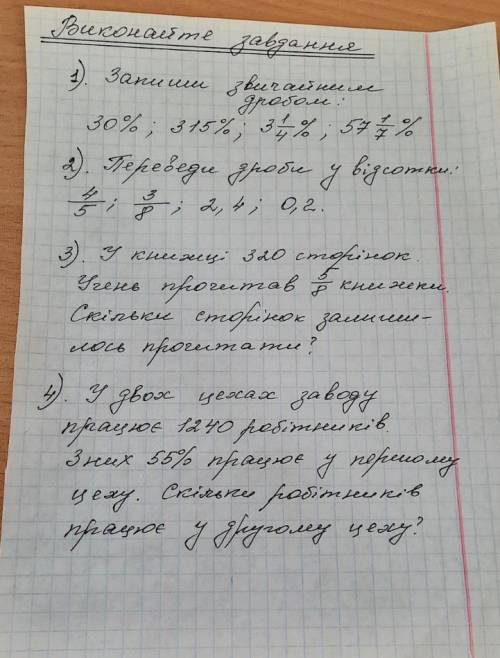 Виконайте завдання
1). Запиши звичайним
дробом:
30%; 315%; 3 1/4 %; 57 1/7 %
2). Переведи дроби у відсотки:
4/5; 3/8; 2,4; 0,2.
3). У книжці 320 сторінок.
Учень прочитав 5/8 книжки.
Скільки сторінок залиши-
лось прочитати?
4). У двох цехах заводу
працює 1240 робітників.
З них 55% працює у першому
цеху. Скільки робітників
працює у другому цеху?